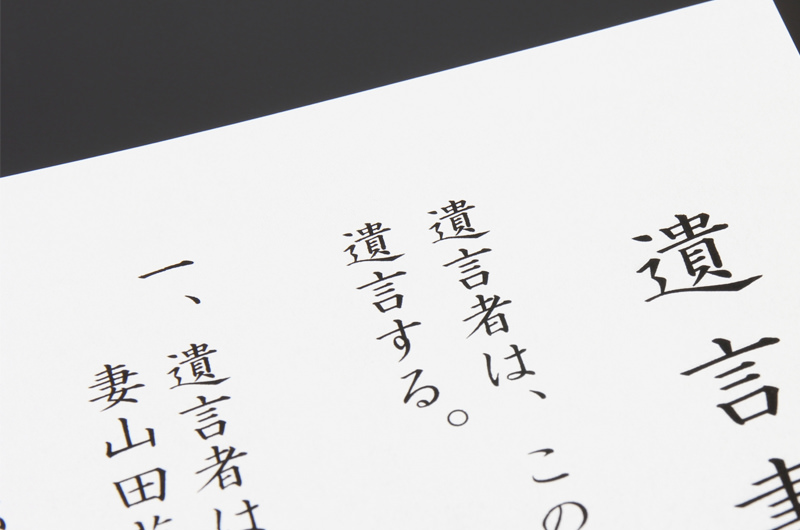 遺言書
遺言者は、この
遺言する。
一、遺言者は
妻山田